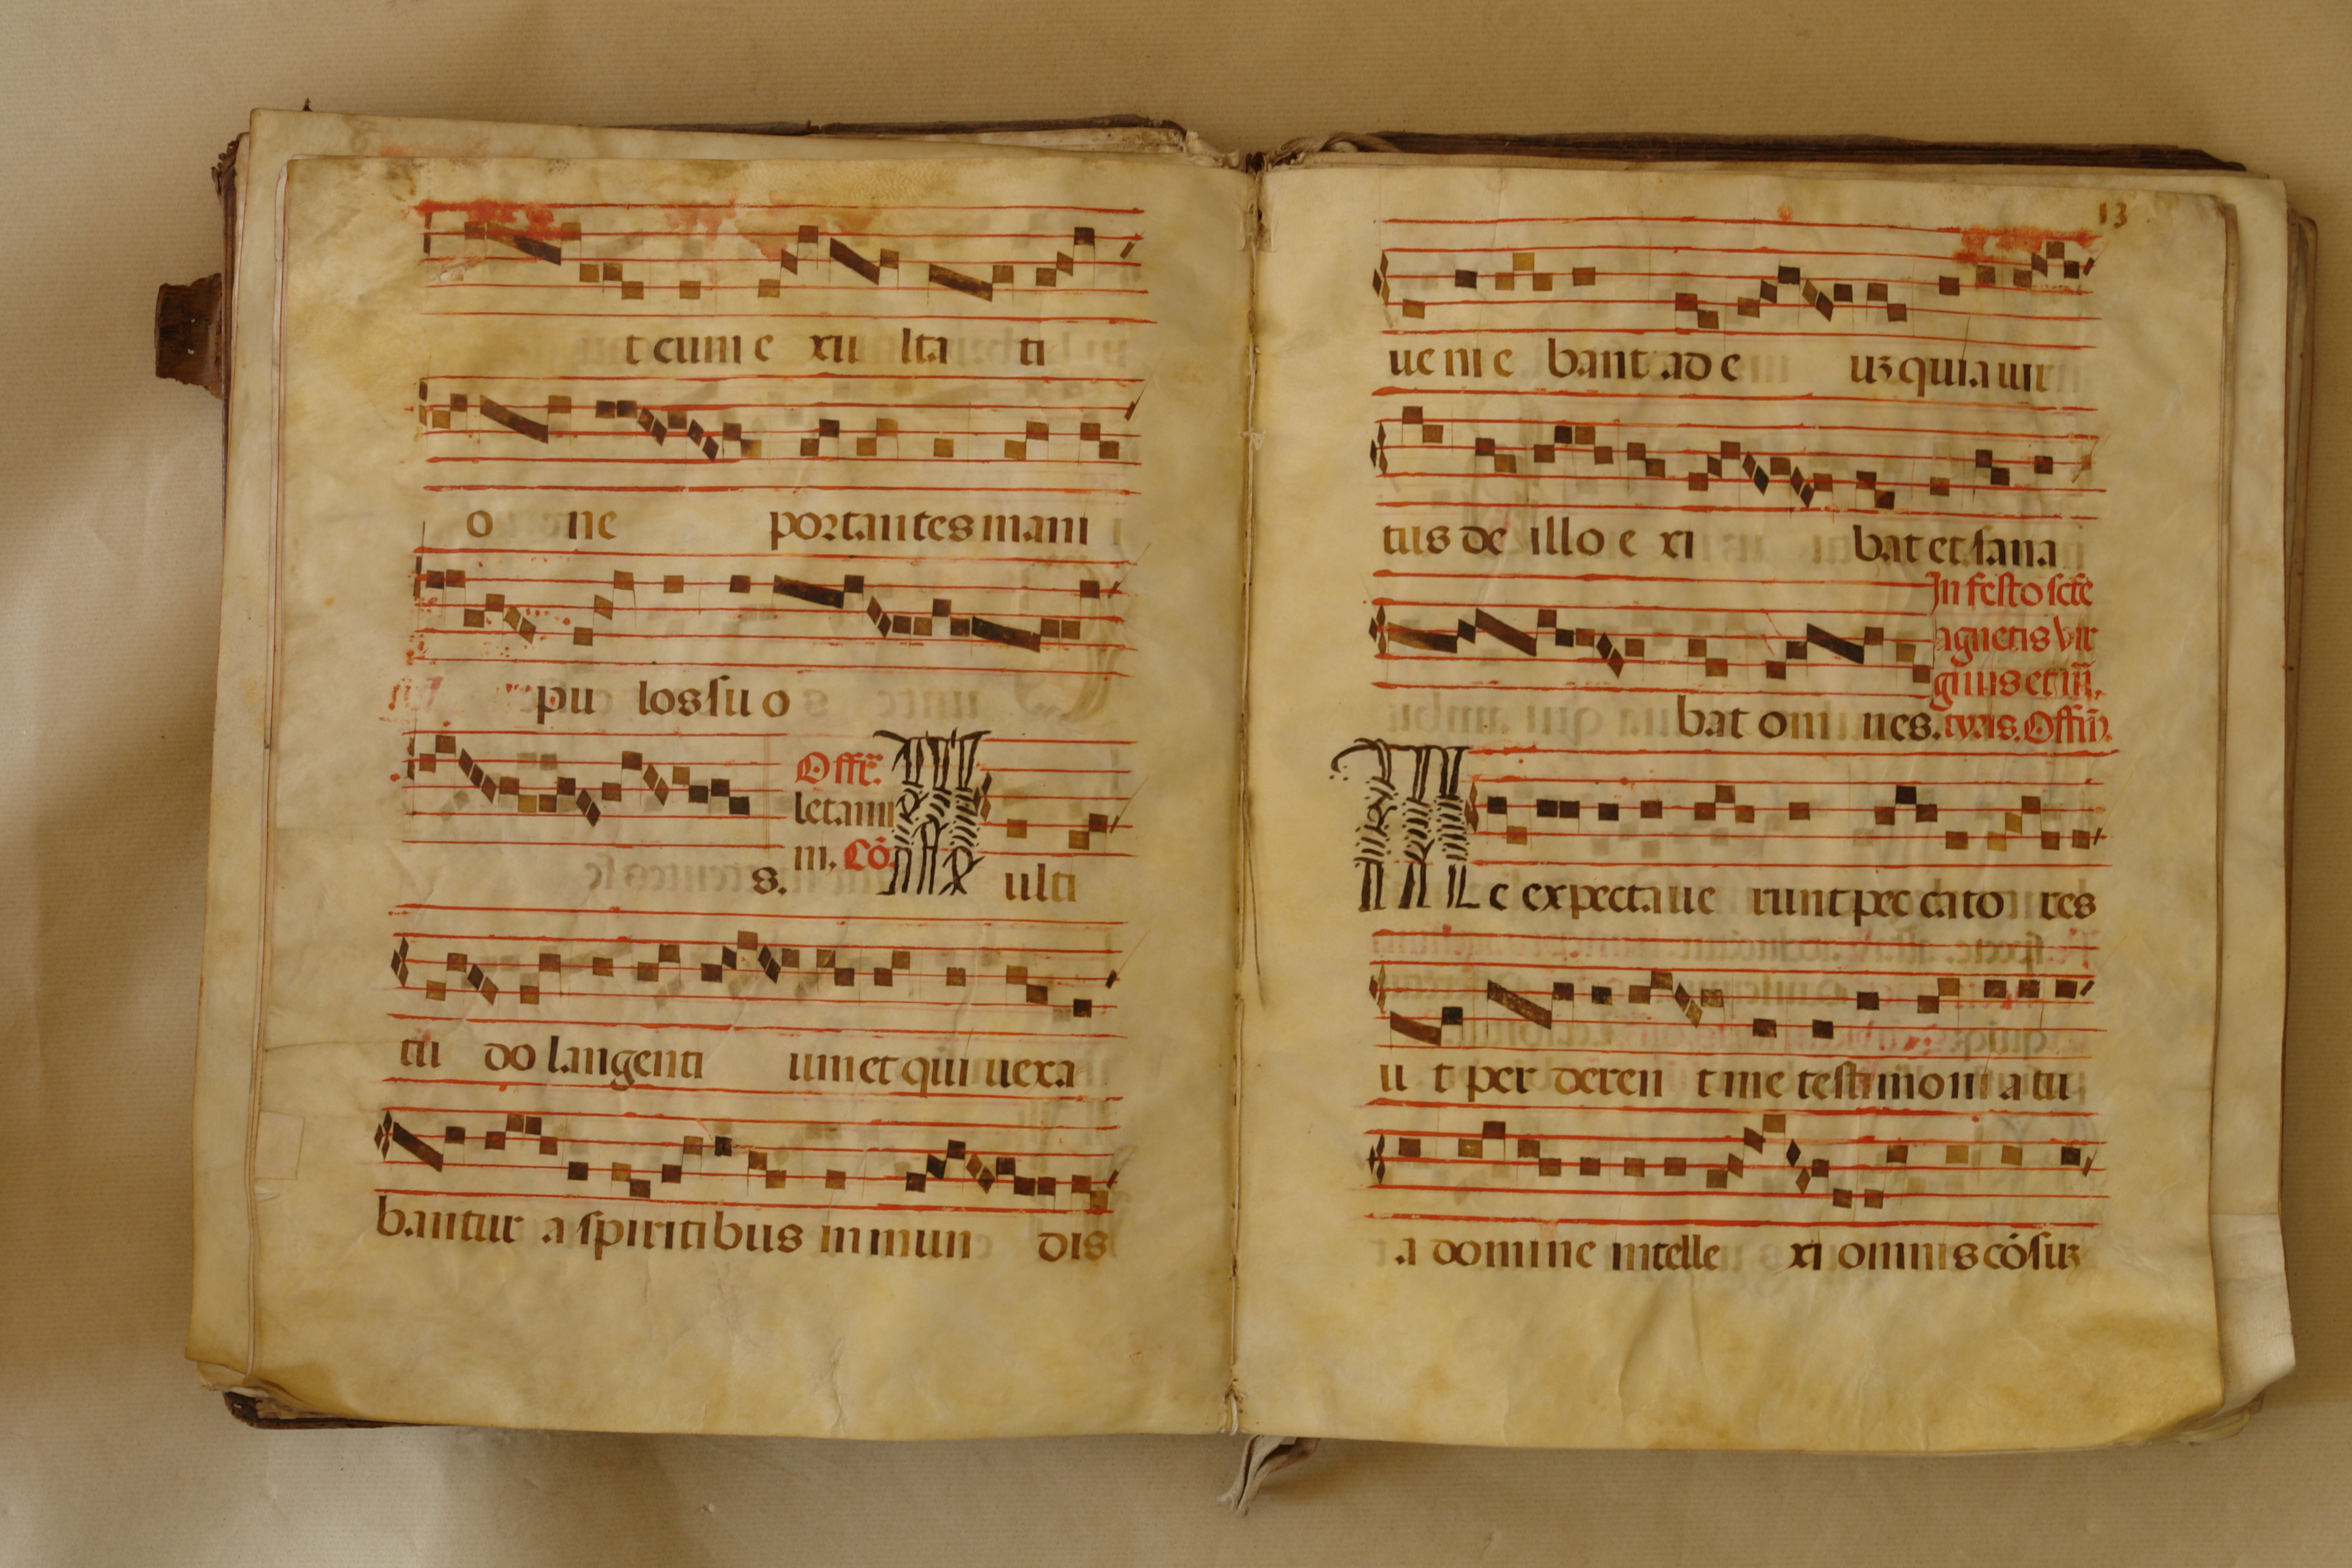 t cum e xu lta ti
o ne portantes mani
pu los ſu o
Offr̃.
letami
s. ni. Cõ M ulti
tu do langenti um et qui uexa
bantur a ſpiriti bus in mun dis
13
ue ni e bant ad e uꝫ quia uir
tus de illo e xi bat et ſana
In feſto ſcẽ
agnetis vir
ginis et m̃r
bat om nes. tyris. Offm̃.
M e expectaue runt pec cato res
u t per deren t me teſtimoni a tu
a domine intelle xi omnis cõſuꝫ